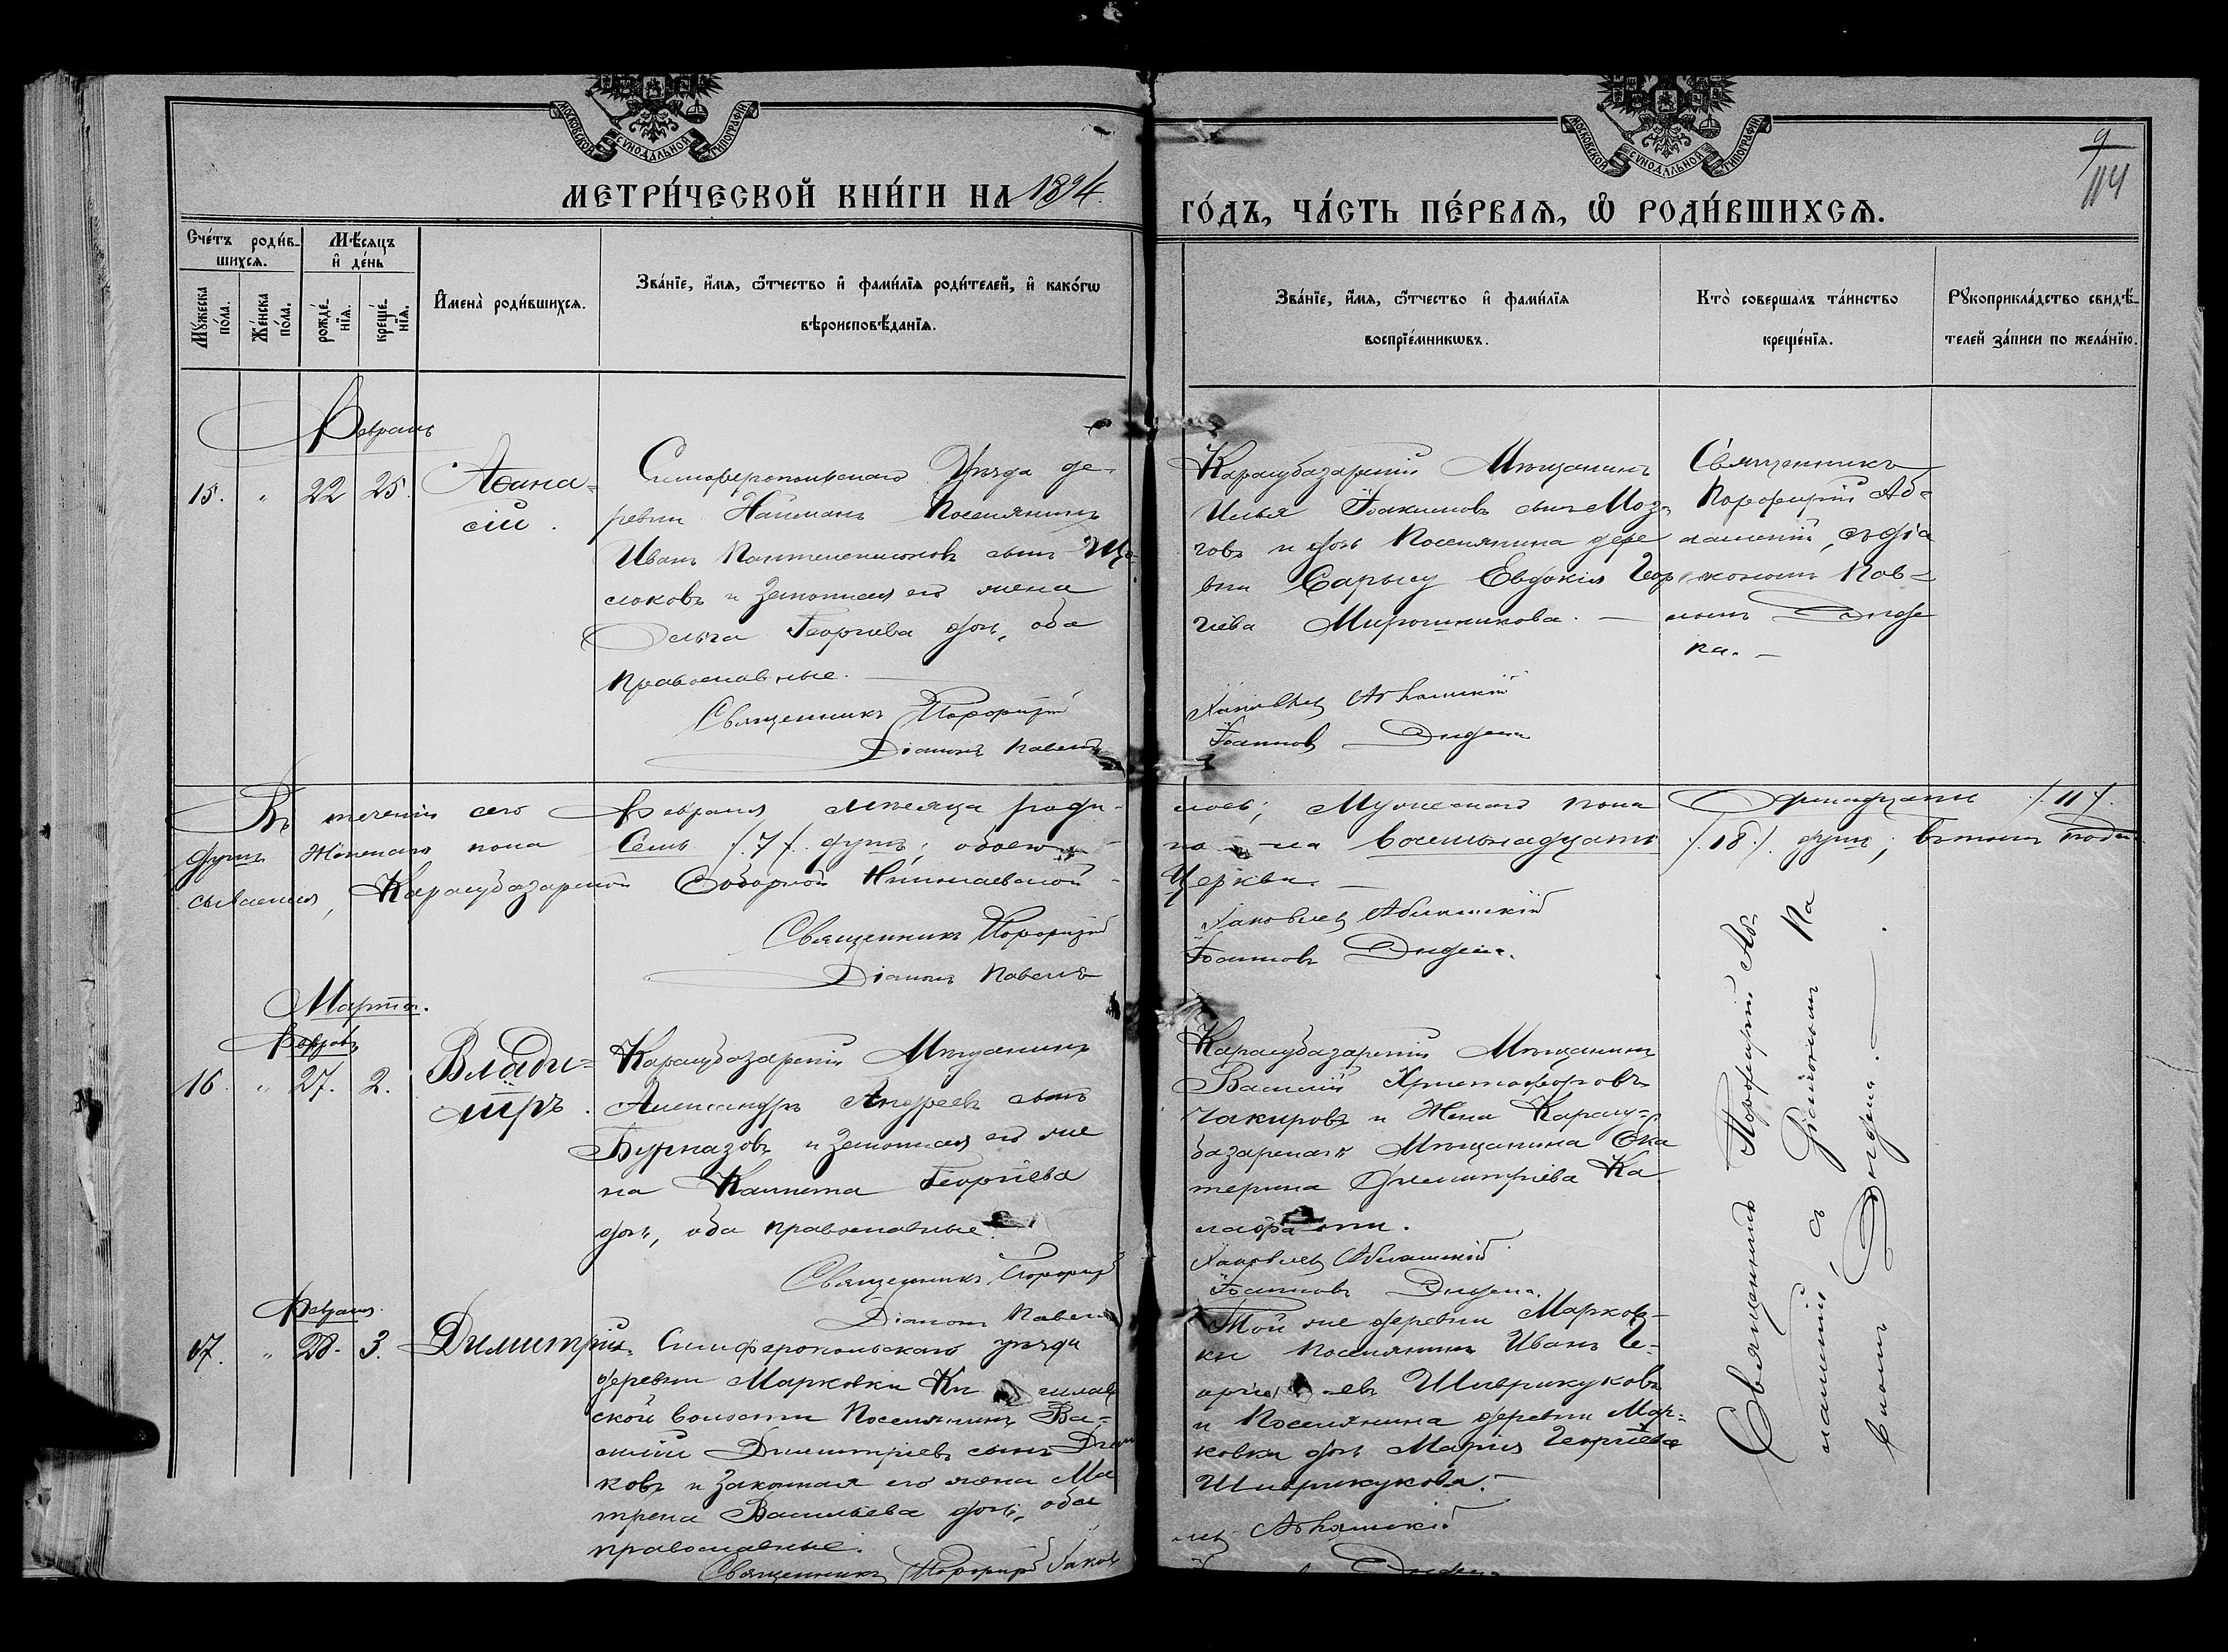 МОСКОВСКОЙ СѴНОДАЛЬНОЙ ТИПОГРАФІИ
МОСКОВСКОЙ СѴНОДАЛЬНОЙ ТИПОГРАФІИ
9
114
МЕТРИ́ЧЕСКОЙ КНИ́ГИ НА 1894.
ГО́ДЪ, ЧА́СТЬ ПЕ́РВАѦ, Ѽ РОДИ́ВШИХСѦ.
Сче́тъ роди́в-
шихсѧ.
Мꙋжеска
по́ла.
Же́нска
по́ла.
Мѣ́сѧцъ
и҆ де́нь
рожде́-
нїѧ.
креще́-
нїѧ.
И҆мена̀ роди́вшихсѧ.
Зва́нїе, и҆́мѧ, ѻ҆́тчество и҆ фами́лїѧ роди́телей, и҆ како́гѡ
вѣроисповѣ́данїѧ.
Зва́нїе, и҆́мѧ, ѻ҆́тчество и҆ фами́лїѧ
воспрїе́мникѡвъ.
Кто̀ соверша́лъ та́инство
креще́нїѧ.
Рꙋкоприкла́дство свидѣ́-
телей за́писи по жела́нїю.
Февраль
15. " 22 25. Аѳана-
сій.
Симферопольскаго Уѣзда де-
ревни Найманъ Поселянинъ
Иванъ Пантелеимоновъ сынъ Ща-
слоковъ и законная его жена
Ольга Георгіева дочь, оба
православные.
Священникъ Порфирій
Діаконъ Павелъ
Карасубазарскій Мѣщанинъ
Илья Іоакимовъ сынъ Моз-
говъ и дочь Поселянина дере
вни Сарысу Евдокія Геор
гіева Мирошникова. —
Яковлев Абламскій
Іоанновъ Дидена
Священникъ
Порфирій Аб-
ламскій, съ діа
кономъ Пав-
ломъ Диде
на. —
Въ теченіи сего Февраля мѣсяца роди-
лось; Мужескаго пола Одинадцать /11/.
душъ Женскаго пола Семь /7/. душъ; обоего
по ла восемьнадцать /18/. душъ; въ томъ подпи
сываемся, Карасубазарской Соборной Николаевской
Церкви. —
Священникъ Порфирій
Діаконъ Павелъ
Яковлев Абламскій
Іоанновъ Дидена.
Мартъ.
Февраль
16. " 27. 2. Влади-
міръ.
Карасубазарскій Мѣщанинъ
Александръ Андреевъ сынъ
Бурназовъ и законная его же
на Каллиста Георгіева
дочь, оба православные.
Священникъ Порфирій
Діаконъ Павелъ
Карасубазарскій Мѣщанинъ
Василій Христофоровъ
Чакировъ и Жена Карасу-
базарскаго Мѣщанина Ека
терина Димитріева Ка
лафа ти.
Яковлев Абламскій
Іоанновъ Дидена.
Священникъ Порфирій Аб-
ламскій съ Діакономъ Па
вломъ Дидена. —
Февраля
17. " 28. 3. Димитрій.
Симферопольскаго уѣзда
деревни Марковки
ской волости Поселянинъ Ва-
силій Димитріевъ сынъ
ковъ и законная его жена Ма
трена Васильева дочь, оба
православные.
Священникъ Порфирій Яков
Той же деревни Марков-
ки поселянинъ Иванъ Ге-
оргі евъ Шиврикуковъ
и Поселянина деревни Мар-
ковки дочь Марія Георгіева
Шиврикукова. —
левъ Абламскій
Дидена